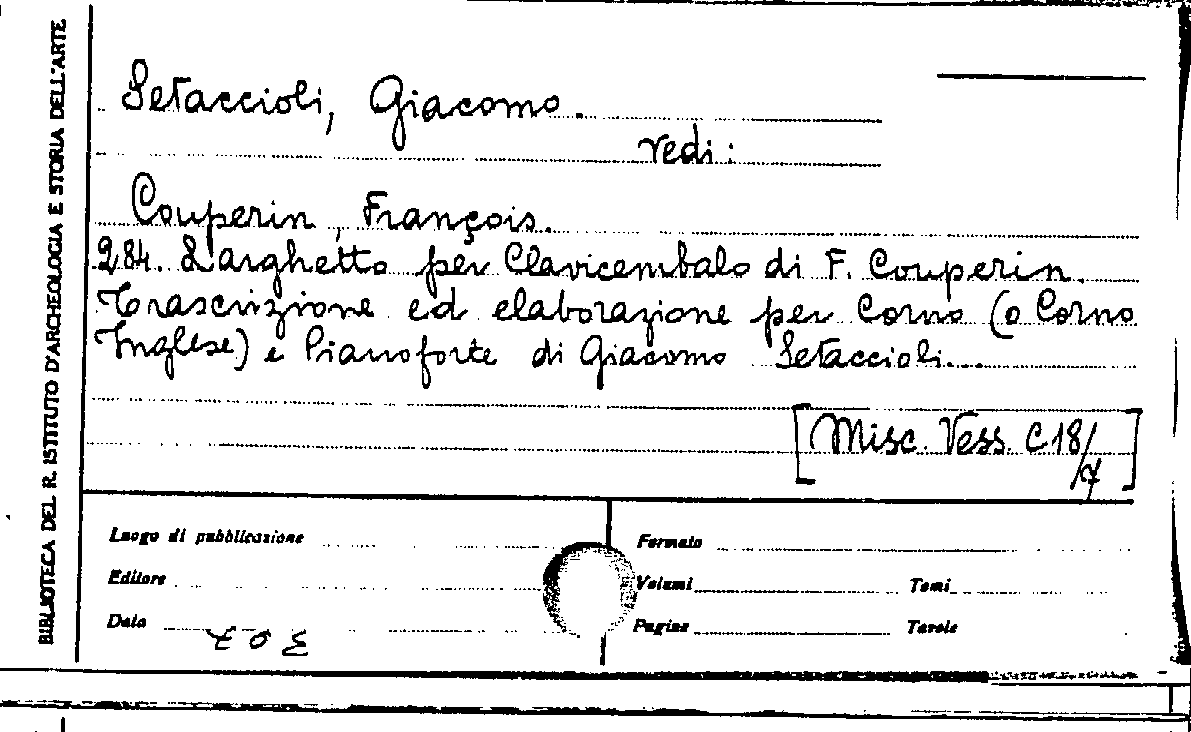 BIBLIOTECA DEL R. ISTITUTO D'ARCHEOLOGIA E STORIA DELL'ARTE
Setaccioli, Giacomo.
vedi:
Couperin, François.
284. Larghetto per Clavicembalo di F. Couperin.
Trascrizione ed elaborazione per Corno (o Corno
Inglese) e Pianoforte di Giacomo Setaccioli....
[Misc. Vess. C 18/7]
Luogo di pubblicazione
Formato
Editore
Volumi
Tomi
Data
Pagine
Tavole